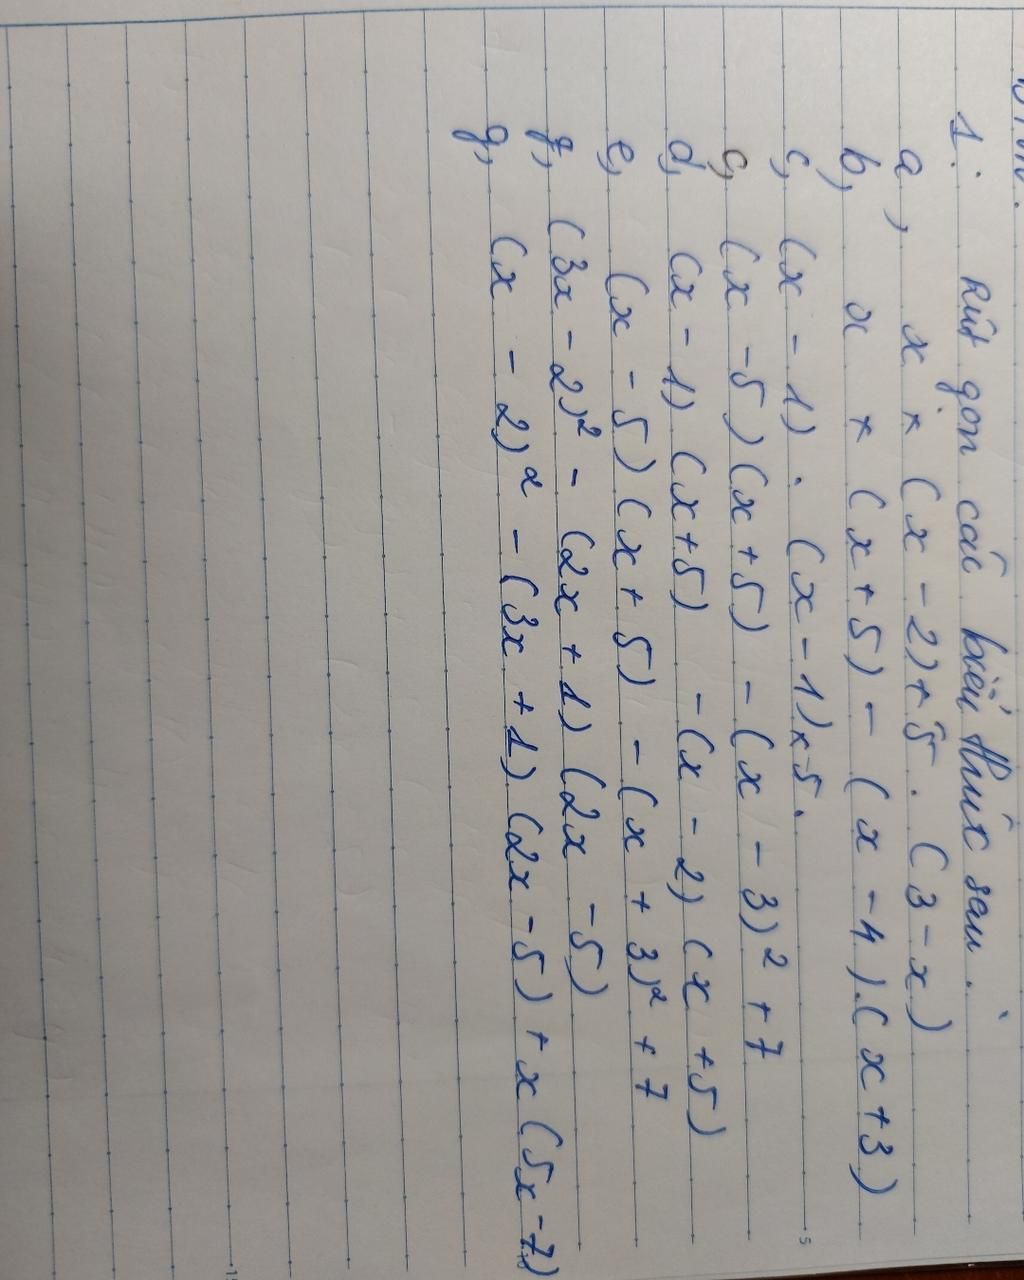 1. Rút gọn các biểu thức sau:
a, x × (x - 2) + 5 . (3 - x)
b, x × (x + 5) - (x - 4).(x + 3)
c, (x - 1) . (x - 1) × 5.
c, (x - 5) (x + 5) - (x - 3)² + 7
d, (x - 1) (x + 5) - (x - 2) (x + 5)
e, (x - 5) (x + 5) - (x + 3)² + 7
f, (3x - 2)² - (2x + 1) (2x - 5)
g, (x - 2)² - (3x + 1) (2x - 5) + x (5x - 7)
5